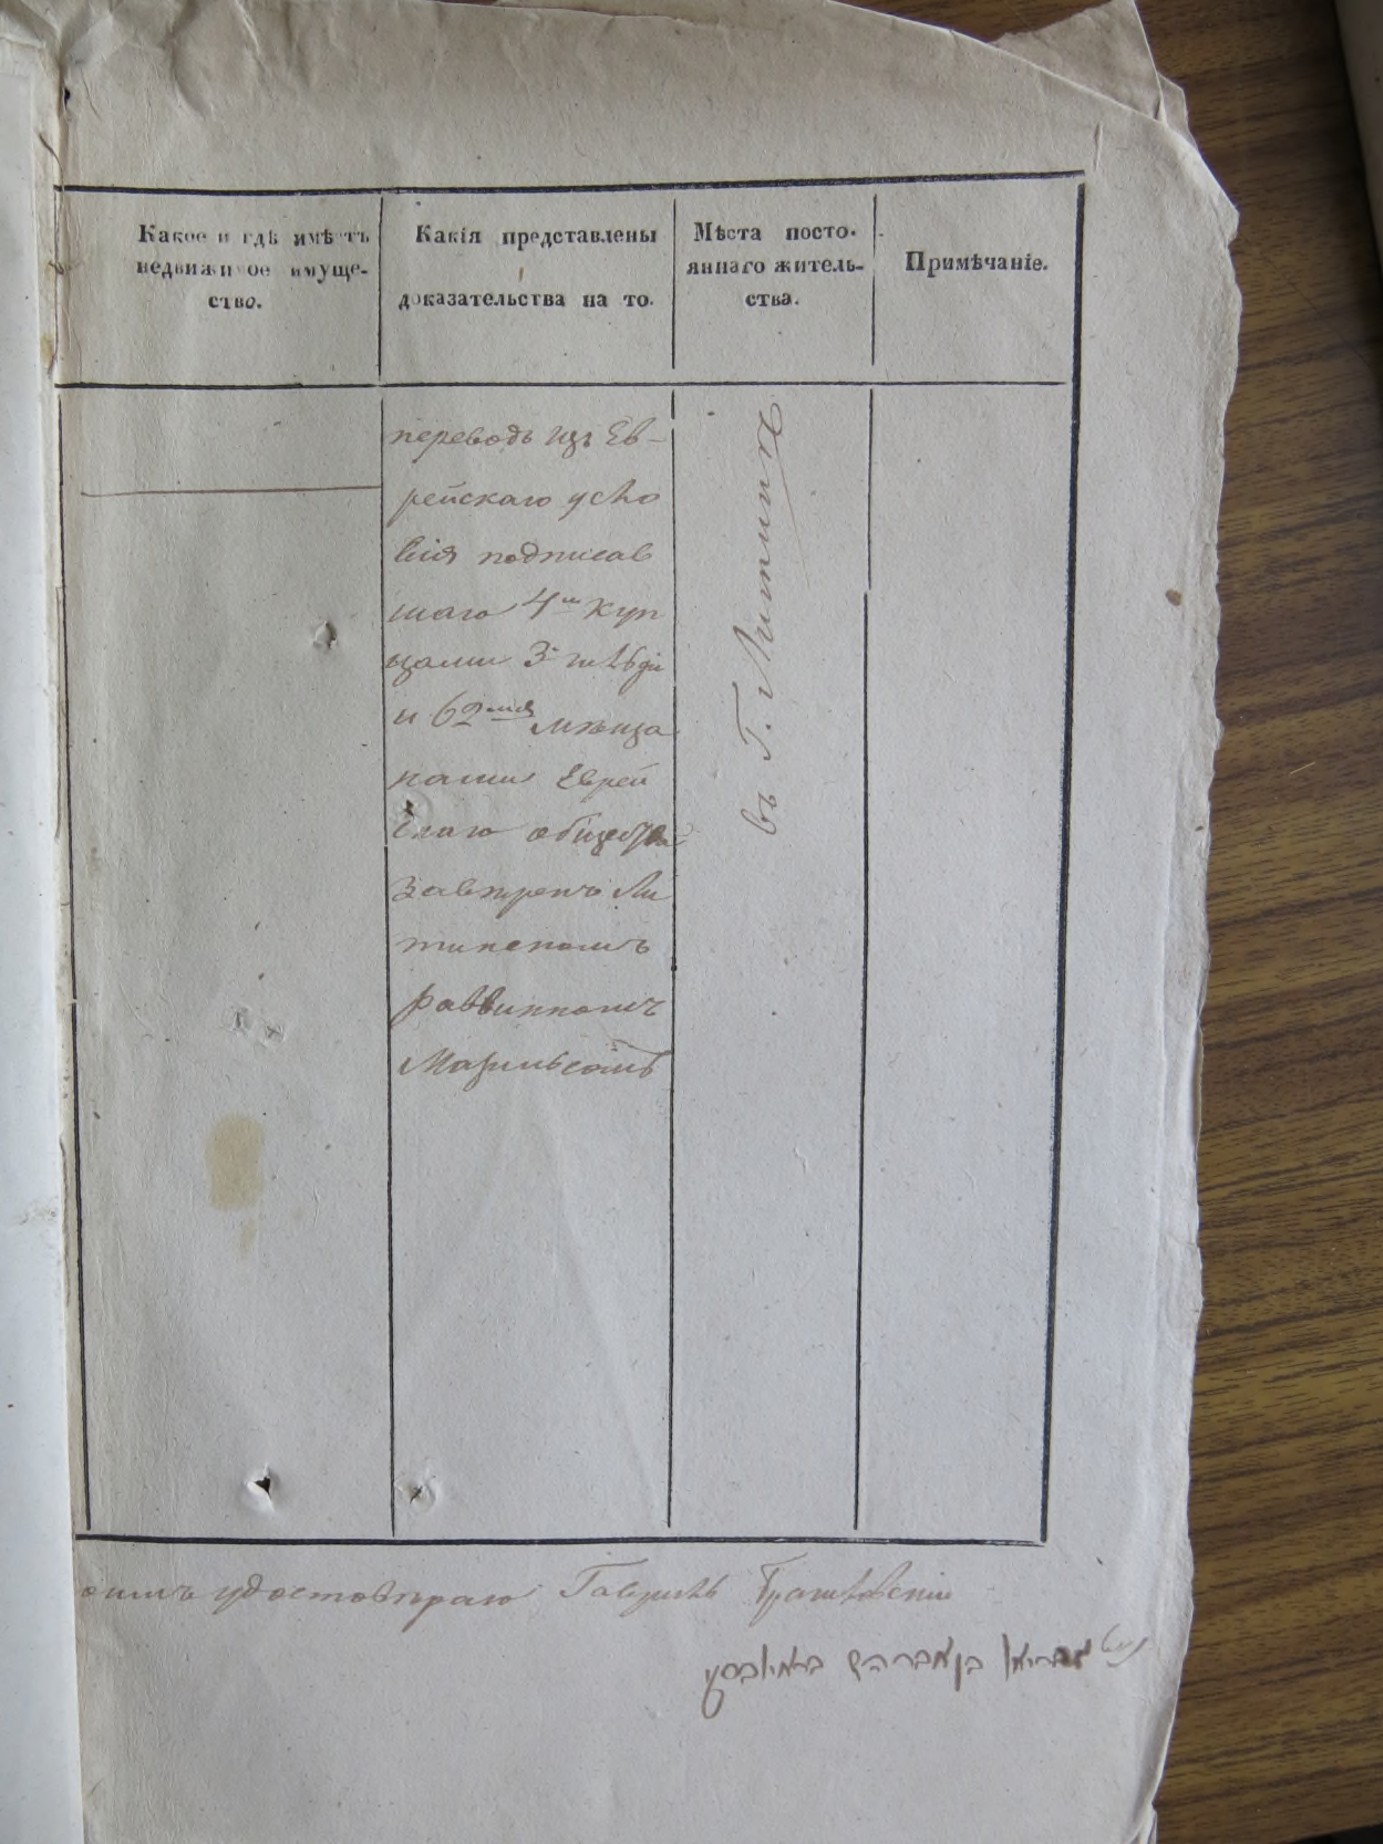 Какое и гдѣ имѣетъ
недвижимое имуще-
ство.
Какія представлены
доказательства на то.
Мѣста посто-
яннаго житель-
ства.
Примѣчаніе.
переводъ изъ Ев-
рейскаго усло
вія подписав
шаго 4мя куп
цами 3й гильдіи
и 62мя мѣща
нами Еврей
скаго общества
завѣренъ Ли
тинскомъ
раввиномъ
въ Г. Литинѣ
удостовѣряю Гаврилъ